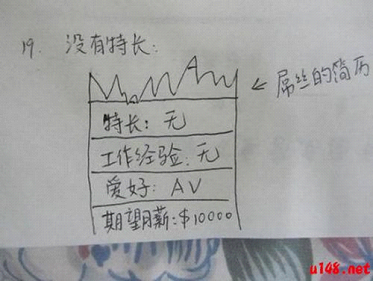 19. 没有特长:
← 屌丝的简历
特长: 无
工作经验: 无
爱好: AV
期望月薪: $10000
u148.net